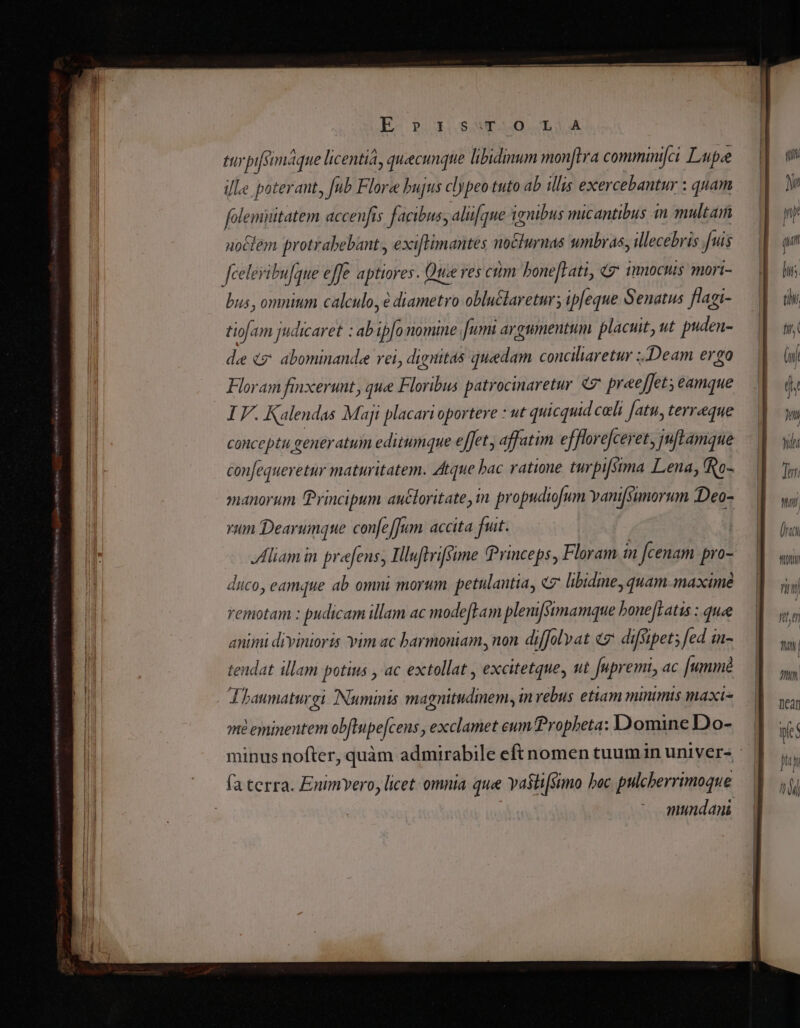 EPISTOLA
turpiſsimáque licentiâ, quæcunque libidinum monſtra comminiſci Lupæ
illæ poterant, ſub Floræ hujus clypeo tuto ab illis exercebantur : quam
ſolemnitatem accenſis facibus, aliiſque ignibus micantibus in multam
noctem protrahebant, exiſtimantes nocturnas umbras, illecebris ſuis
ſceleribuſque eſſe aptiores. Quæ res cùm honeſtati, & innocuis mori-
bus, omnium calculo, è diametro obluctaretur; ipſeque Senatus flagi-
tioſam judicaret : ab ipſo nomine ſumi argumentum placuit, ut puden-
dæ & abominandæ rei, dignitas quædam conciliaretur ; Deam ergo
Floram finxerunt, quæ Floribus patrocinaretur & præeſſet; eamque
IV. Kalendas Maji placari oportere : ut quicquid cœli ſatu, terræque
conceptu generatum editumque eſſet, affatim effloreſceret, juſtamque
conſequeretur maturitatem. Atque hac ratione turpiſsima Lena, Ro-
manorum Principum auctoritate, in propudioſum vaniſsimorum Deo-
rum Dearumque conſeſſum accita fuit.
Aliam in præſens, Illuſtriſsime Princeps, Floram in ſcenam pro-
duco, eamque ab omni morum petulantia, & libidine, quam maximè
remotam : pudicam illam ac modeſtam pleniſsimamque honeſtatis : quæ
animi divinioris vim ac harmoniam, non diſſolvat & diſsipet; ſed in-
tendat illam potius, ac extollat, excitetque, ut ſupremi, ac ſummè
Thaumaturgi Numinis magnitudinem, in rebus etiam minimis maxi-
mè eminentem obſtupeſcens, exclamet cum Propheta: Domine Do-
minus noſter, quàm admirabile eſt nomen tuum in univer-
ſa terra. Enimvero, licet omnia quæ vaſtiſsimo hoc pulcherrimoque
mundani